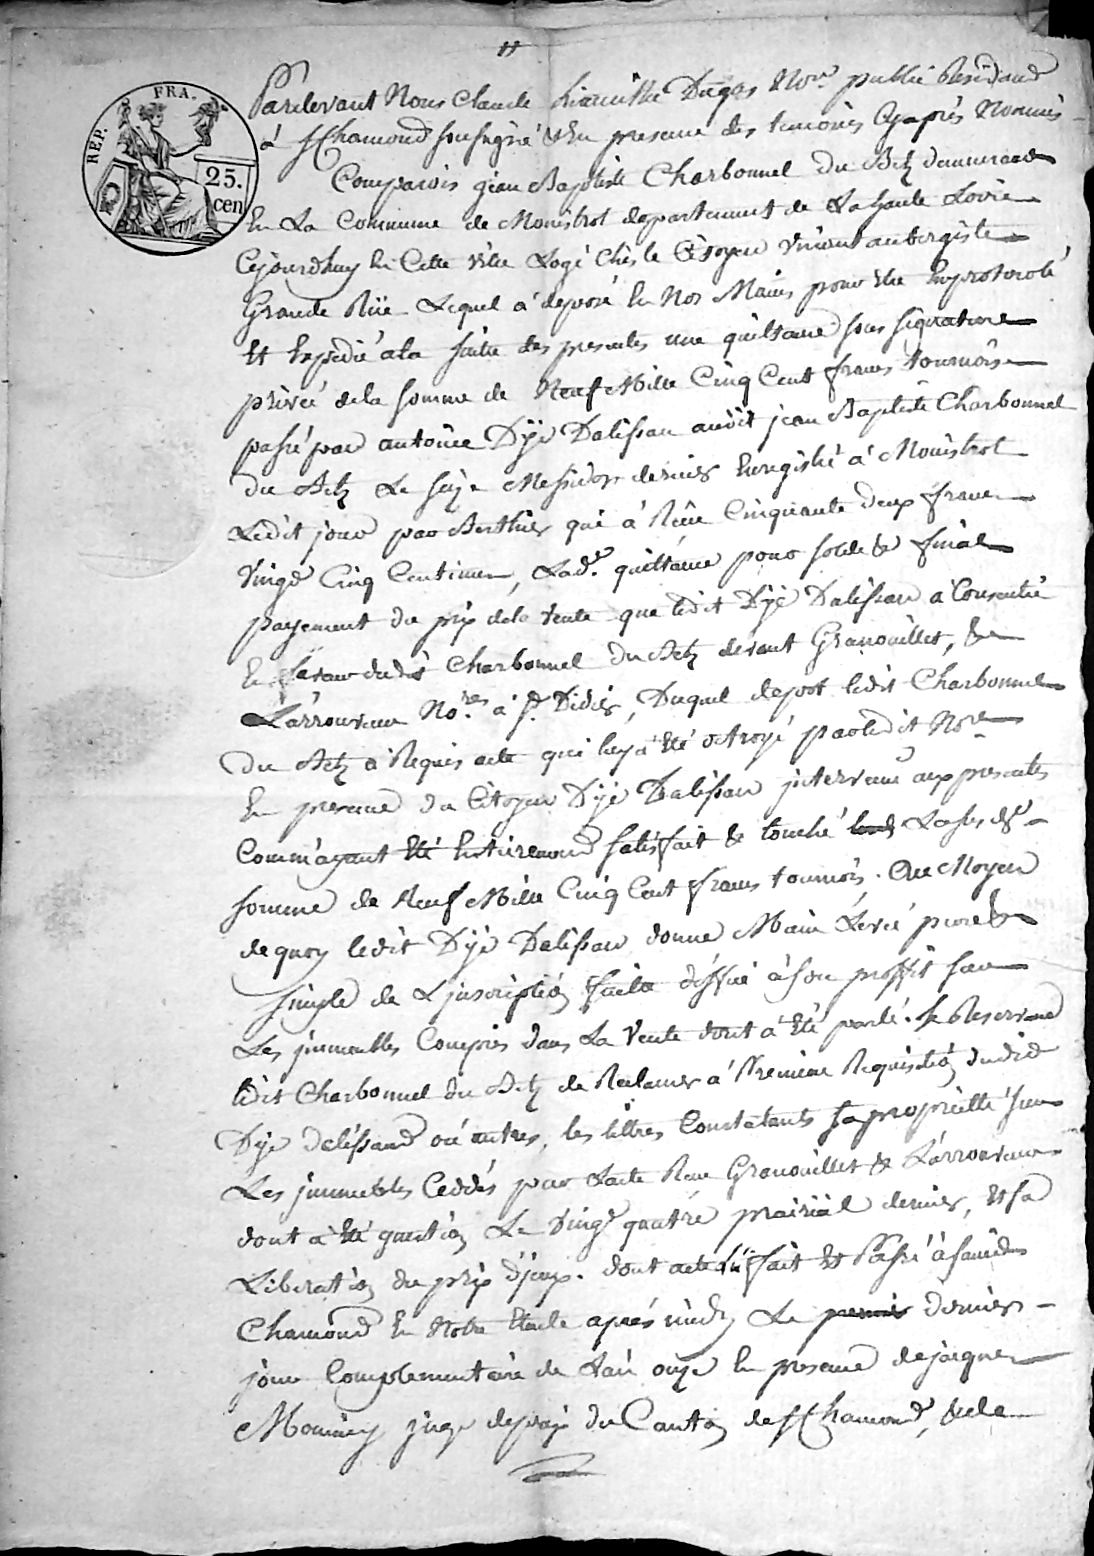 REP. FRA.
25.
cen
Pardevant Nous Claude Dugas No.re public Residant
à St Chamond soussigné & En presence des temoins Cyaprés Nommés
Comparois jean Baptiste Charbonnel du Betz demeurant
En La Commune de Monistrol departement de La haute Loire
Cejourdhuy En Cette ville Logé Chés le Citoyen Vincent aubergiste
Grande Rüe Lequel a deposé En Nos Mains pour Etre Enprotocolé
Et Expedié ala suitte des presentes une quittance sous signature
privée dela somme de Neuf Mille Cinq Cent francs tournois
passé par antoine Dijé Dalissan audit jean Baptiste Charbonnel
du Betz Le seize Messidor dernier Enregistré à Monistrol
Ledit jour par Berthier qui à Reçu Cinquante deux francs
Vingt Cinq Centimes, Lad.e quittance pour solde & final
payement du prix dela Vente que ledit Dijé Dalissan a Consentie
En faveur dudit Charbonnel du Betz devant Granouillet, &
Larrouveure No.res à St Didier, Duquel depot ledit Charbonnel
du Betz à Requis acte qui luy a Eté octroyé par ledit No.re
En presence du Citoyen Dijé Dalissan intervenu aux presentes
Comm'ayant Eté Entierement satisfait & touché La susd.e
somme de Neuf Mille Cinq Cent francs tournois. Au Moyen
dequoy ledit Dijé Dalissan donne Main Levée pure &
simple de L'inscription faite d'office à son proffit sur
Les immeubles Compris dans La Vente dont a Eté parlé. Se Reservant
ledit Charbonnel du Betz de Reclamer à Premiere Requisition dudit
Dijé dalissand ou autres, les titres Constatants sa proprietté sur
Les immeubles Ceddés par L'acte Reçu Granouillet & Larrouveure
dont a Eté question Le Vingt quatre prairial dernier, Et sa
Liberation du prix d'jceux. dont acte fait Et Passé à saint
Chamond En Notre Etude aprés midy Le premier dernier
jour Complementaire de L'an onze En presence de jacques
Mommey juge depaix du Canton de St Chamond, & de